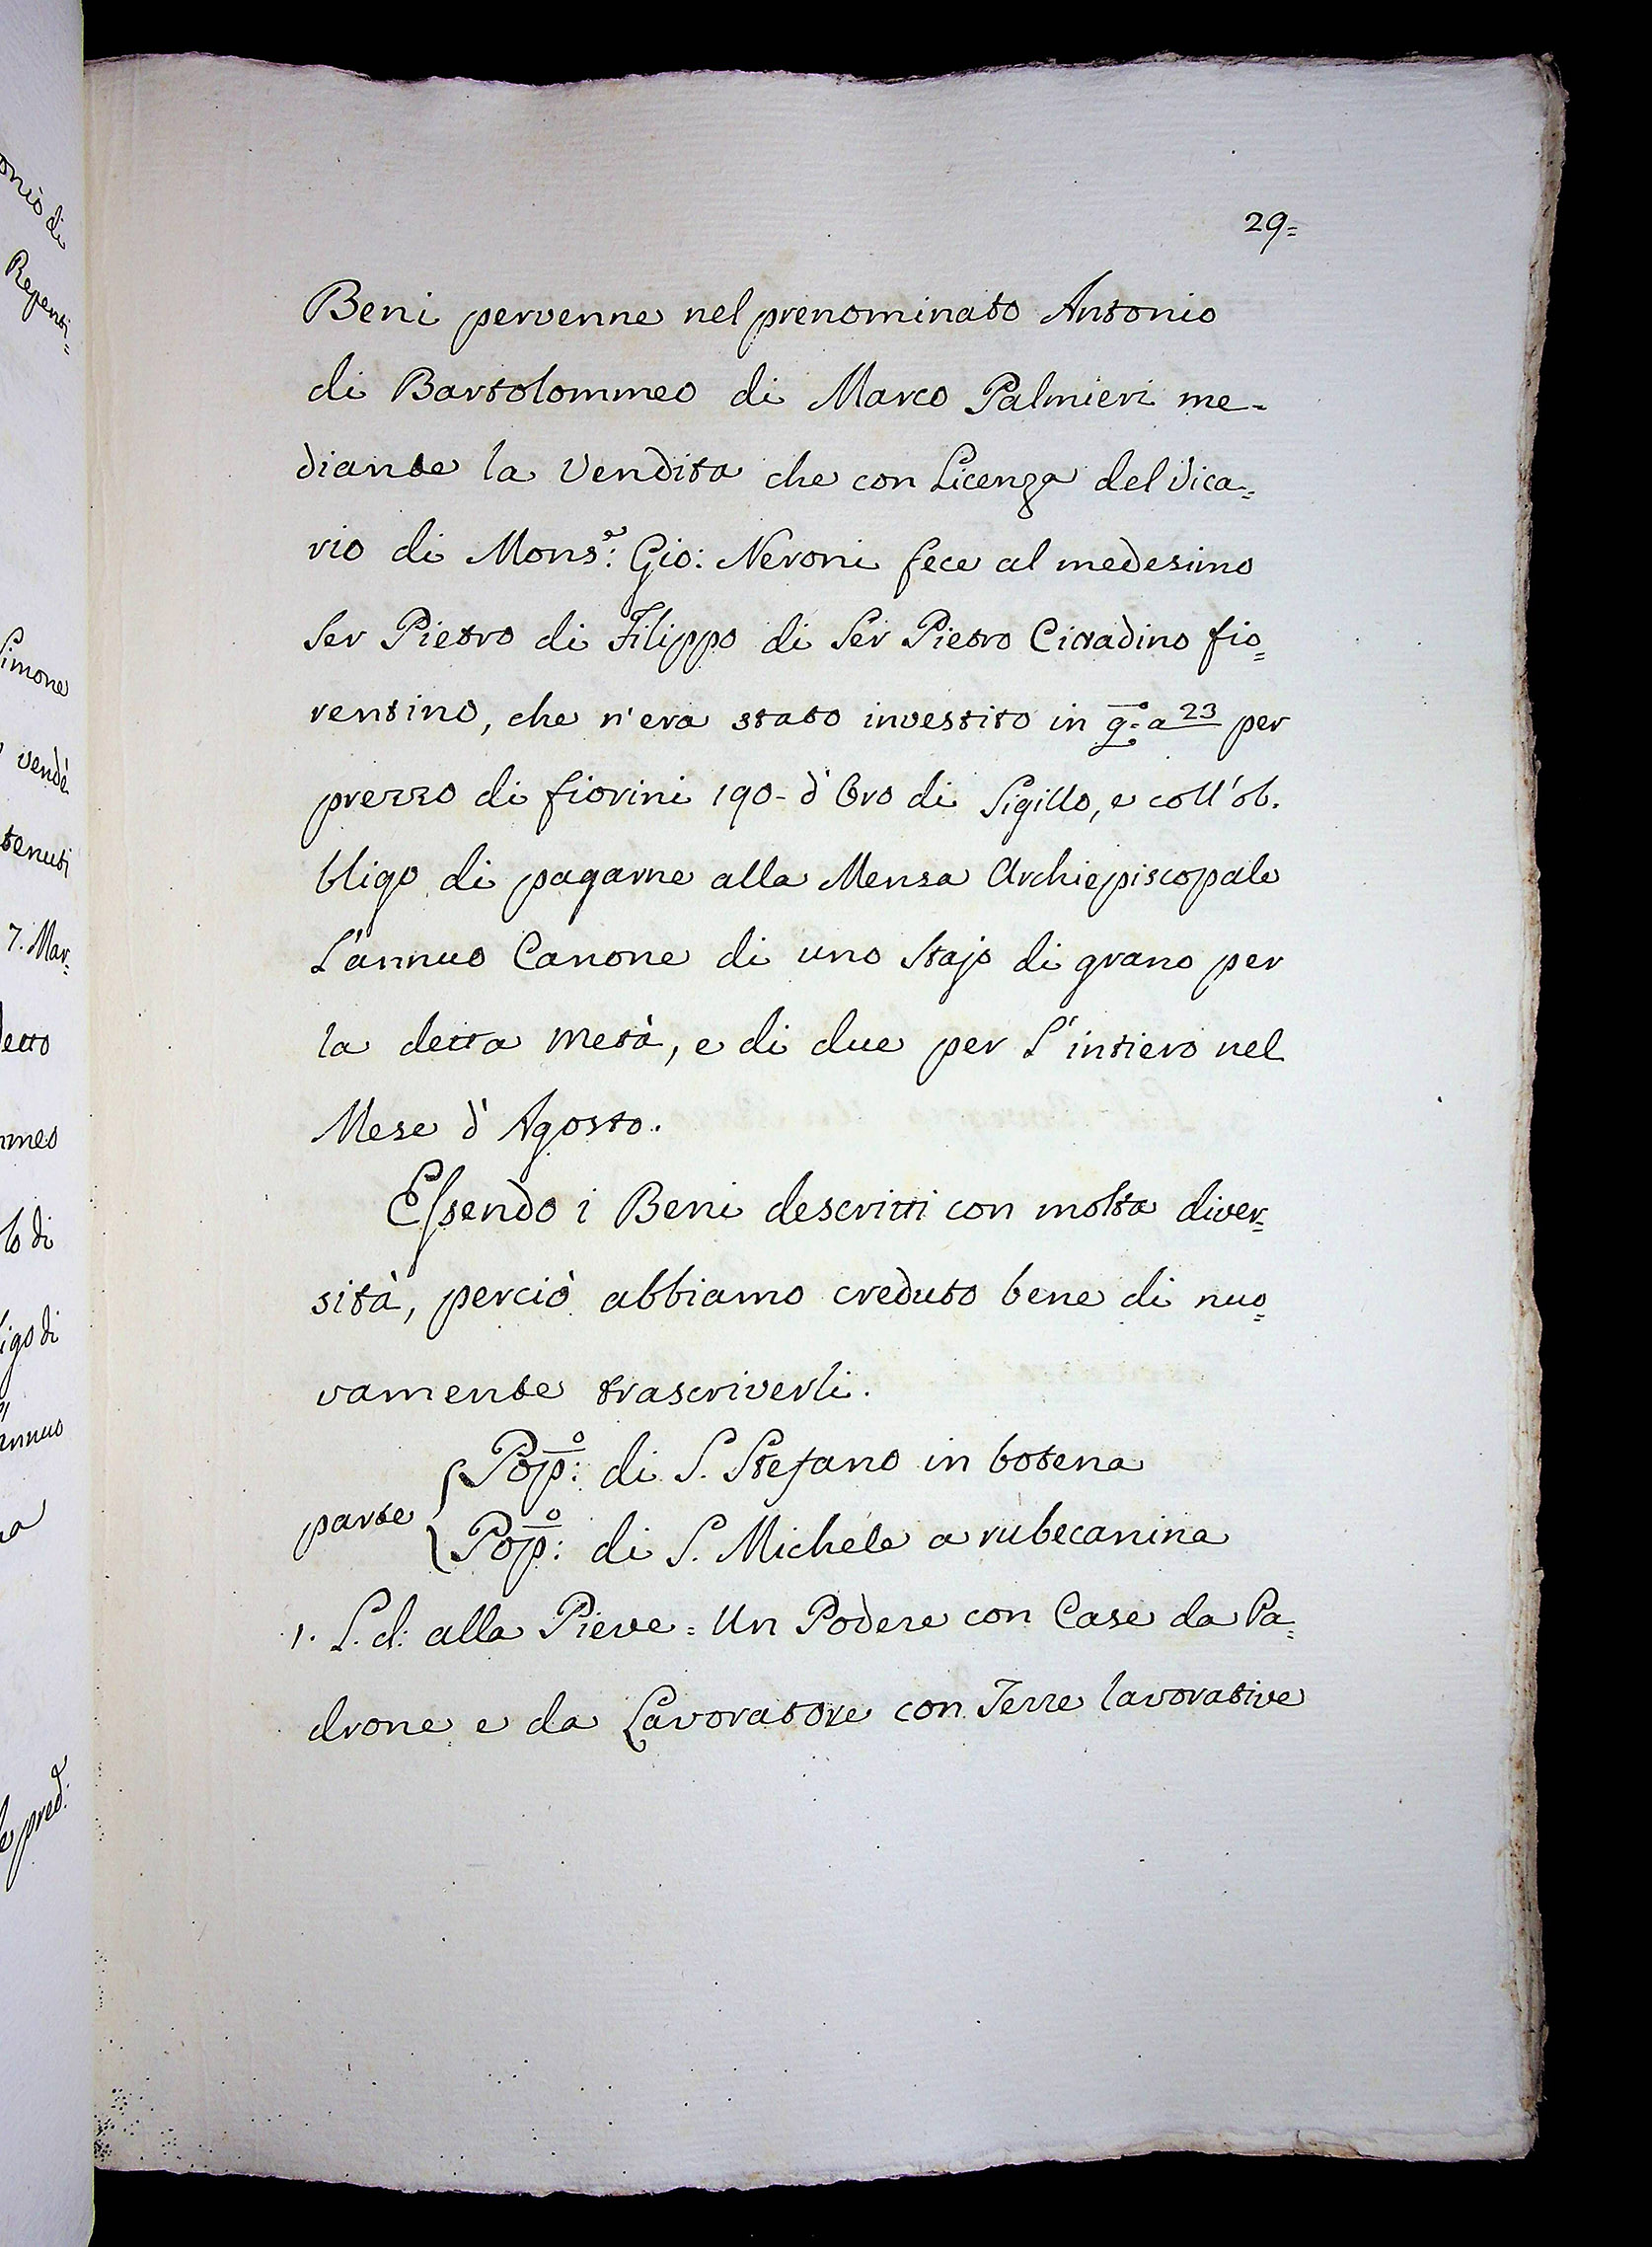 29=
Beni pervenne nel prenominato Antonio
di Bartolommeo di Marco Palmieri me-
diante la Vendita che con Licenza del Vica=
rio di Mons.e: Gio: Neroni fece al medesimo
Ser Pietro di Filippo di Ser Pietro Cittadino fio=
rentino, che n'era stato investito in q:o a 23 per
prezzo di fiorini 190- d'Oro di Sigillo, e coll'ob.
bligo di pagarne alla Mensa Archiepiscopale
L'annuo Canone di uno Stajo di grano per
la detta metà, e di due per L'intiero nel
Mese d'Agosto.
Essendo i Beni descritti con molta diver=
sità, perciò abbiamo creduto bene di nuo=
vamente trascriverli.
Pop:o di S. Stefano in botena
parte
Pop:o di S. Michele a rubecanina
1. L.d: alla Pieve = Un Podere con Case da Pa=
drone e da Lavoratore con Terre lavorative
onio di
Repenti=
Simone
vendè
tenuti
7. Mar=
detto
mmeo
lo di
igo di
annuo
pred: